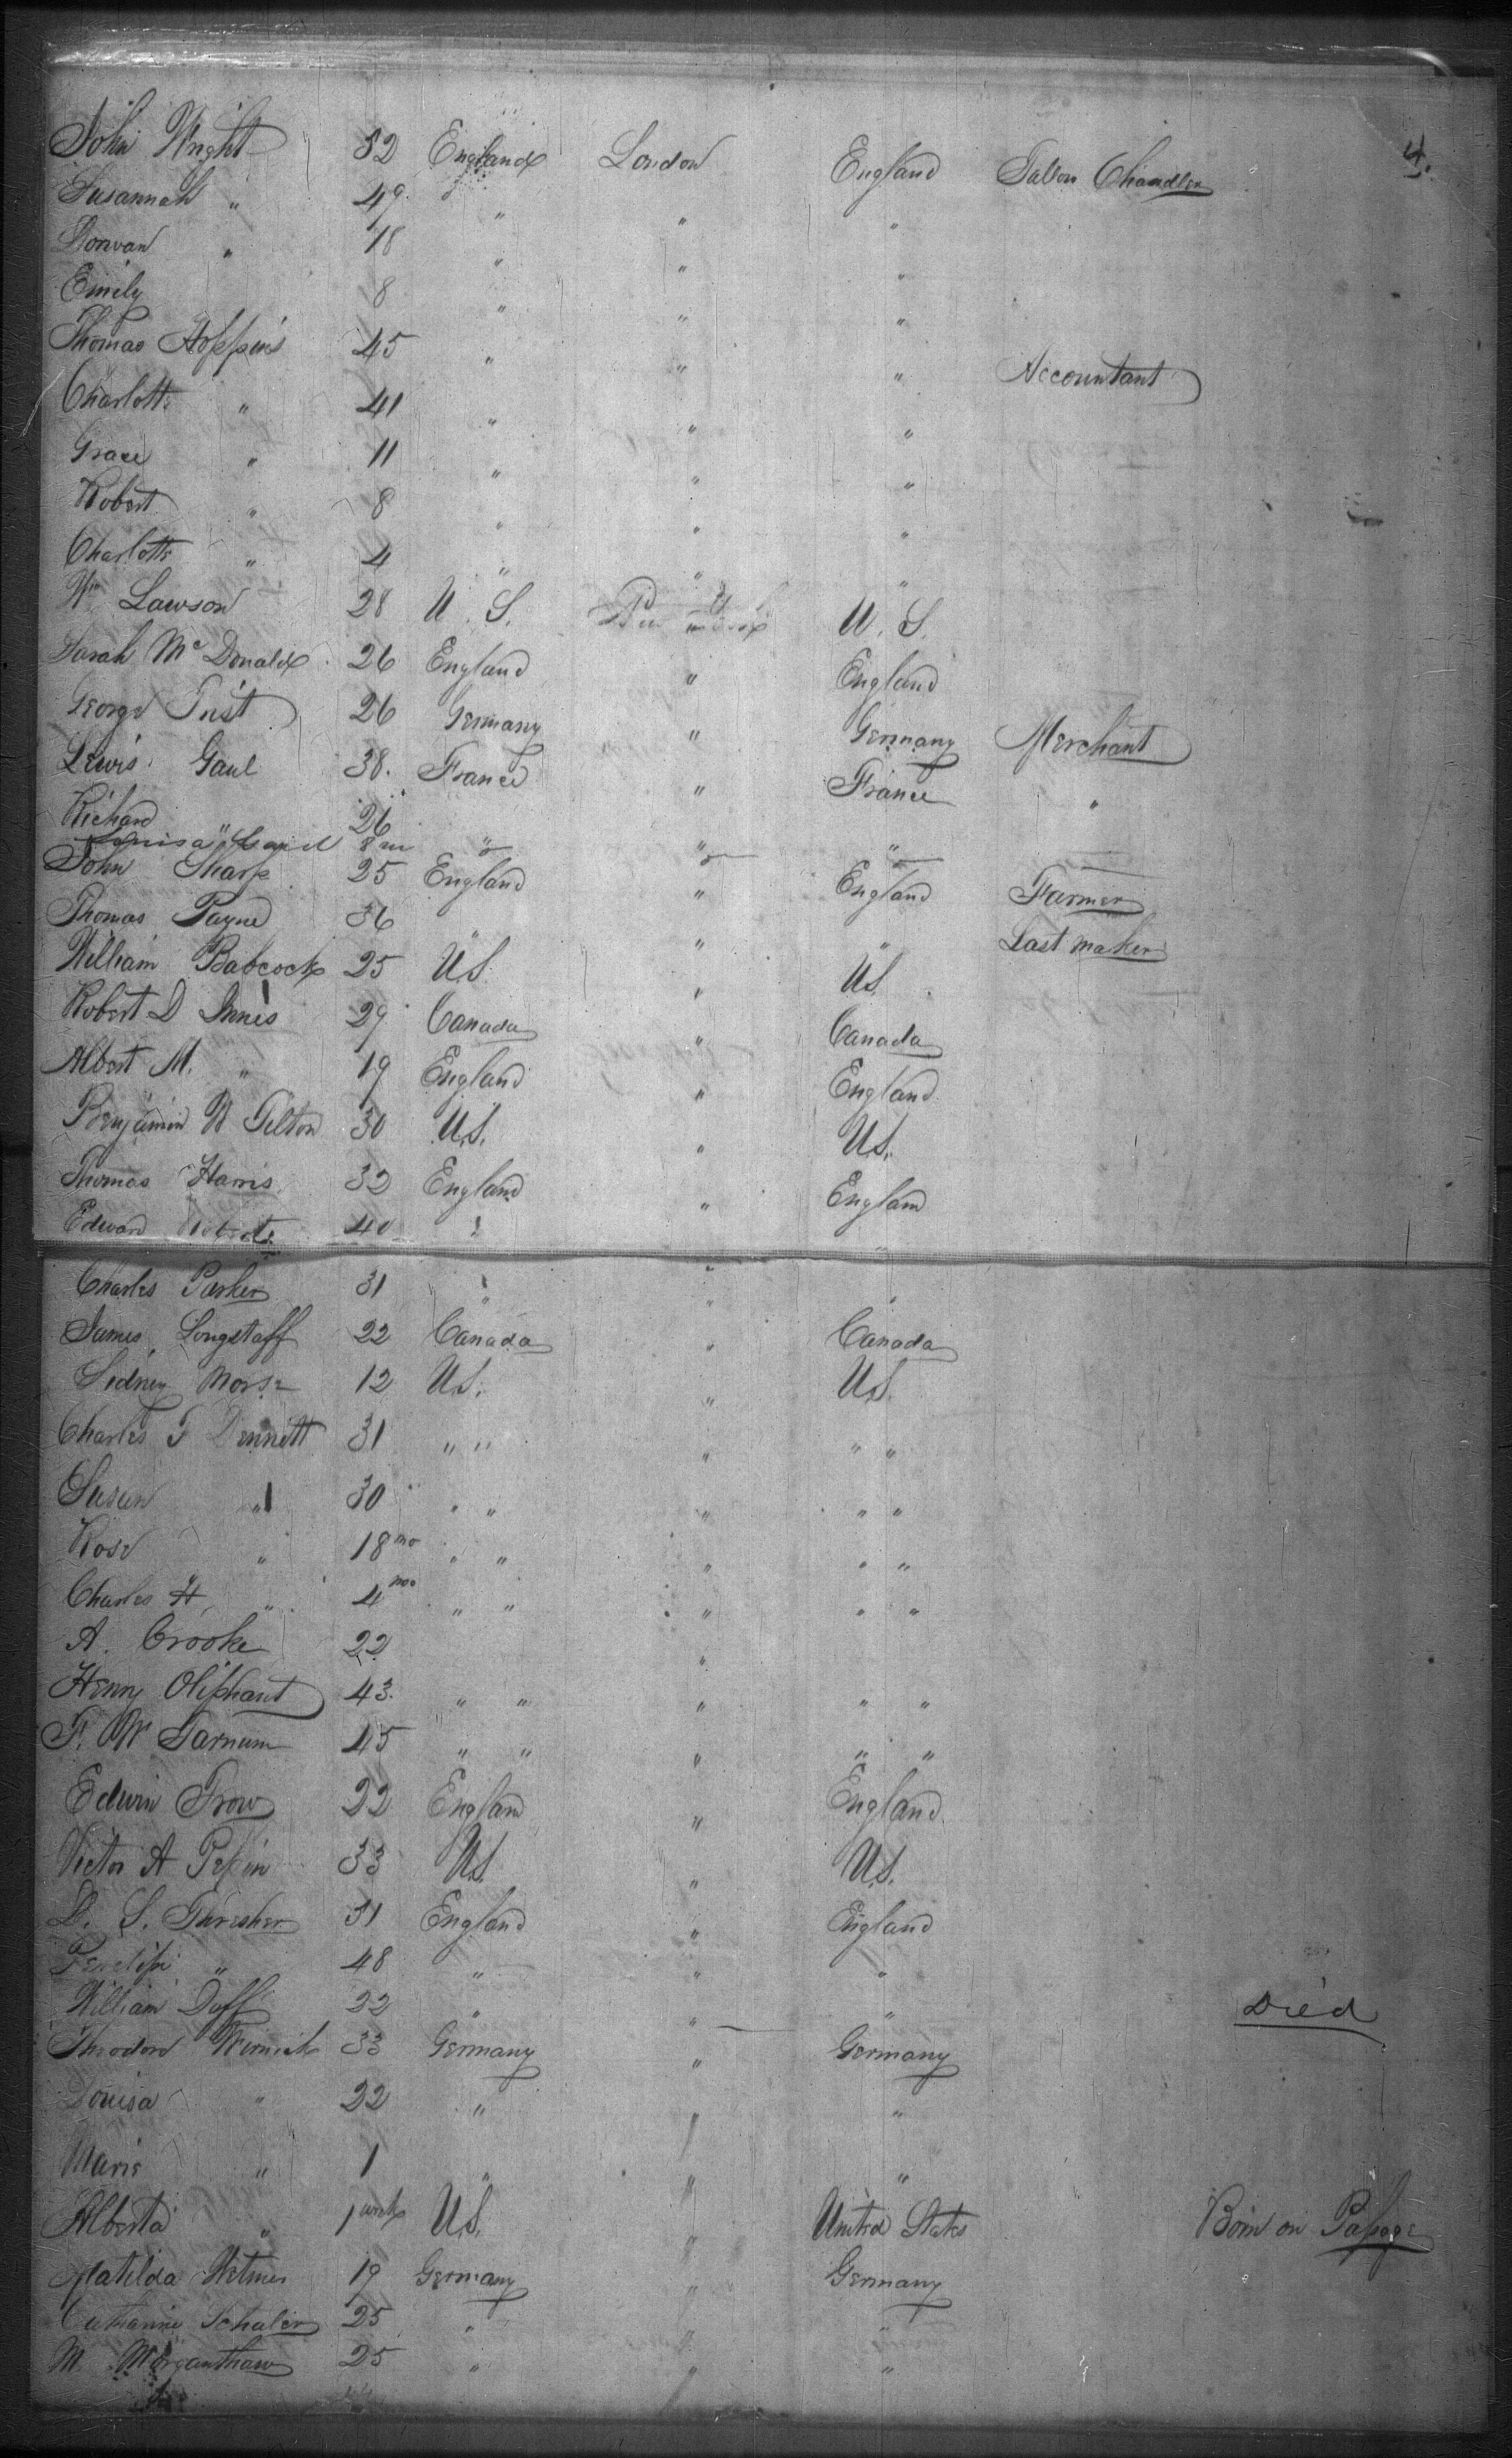 4.
John Wright 52 England London England Tallow Chandler
Susannah " 49 " " "
Donvan " 18 " " "
Emily 8 " " "
Thomas Hoppins 45 " " " Accountant
Charlotte " 41 " " "
Grace " 11 " " "
Robert " 8 " " "
Charlotte " 4 " " "
Wm Lawson 28 U. S. U. S.
Sarah Mc Donald 26 England " England
George Trist 26 Germany " Germany Merchant
Lewis Gaul 38. France " France "
Richard " 26 " " "
Louisa 8 m
John Sharp 25 England " England Farmer
Thomas Payne 36 " " " Last maker
William Babcock 25 U.S. " U.S.
Robert D Innis 29 Canada " Canada
Albert M. " 19 England " England
Benjamin W Tilton 30 U.S. " U.S.
Thomas Harris 32 England " England
Edward Roberts 40 " " "
Charles Parker 31 " " "
James Longstaff 22 Canada " Canada
Sidney Morse 12 U.S. " U.S.
Charles F Dennett 31 " " " " "
Susan " 30 " " " " "
Rose " 18 mo " " " " "
Charles H, " 4 mo " " " " "
A. Crooke 22 "
Henry Oliphant 43 " " " " "
F. W Farnum 45 " " " " "
Edwin Trow 22 England " England
Victor A Pepin 33 U.S. " U.S.
D. S. Thresher 31 England " England
" 48 " " "
William Duff 22 " " " Died
Theodore Wernick 33 Germany " Germany
Louisa " 22 " " "
Marie " 1 " " "
Alberta " 1 week U.S. " United States Born on Passage
Matilda Wetmer 19 Germany " Germany
Catharine Schaler 25 " " "
M. Morganthaw 25 " " "